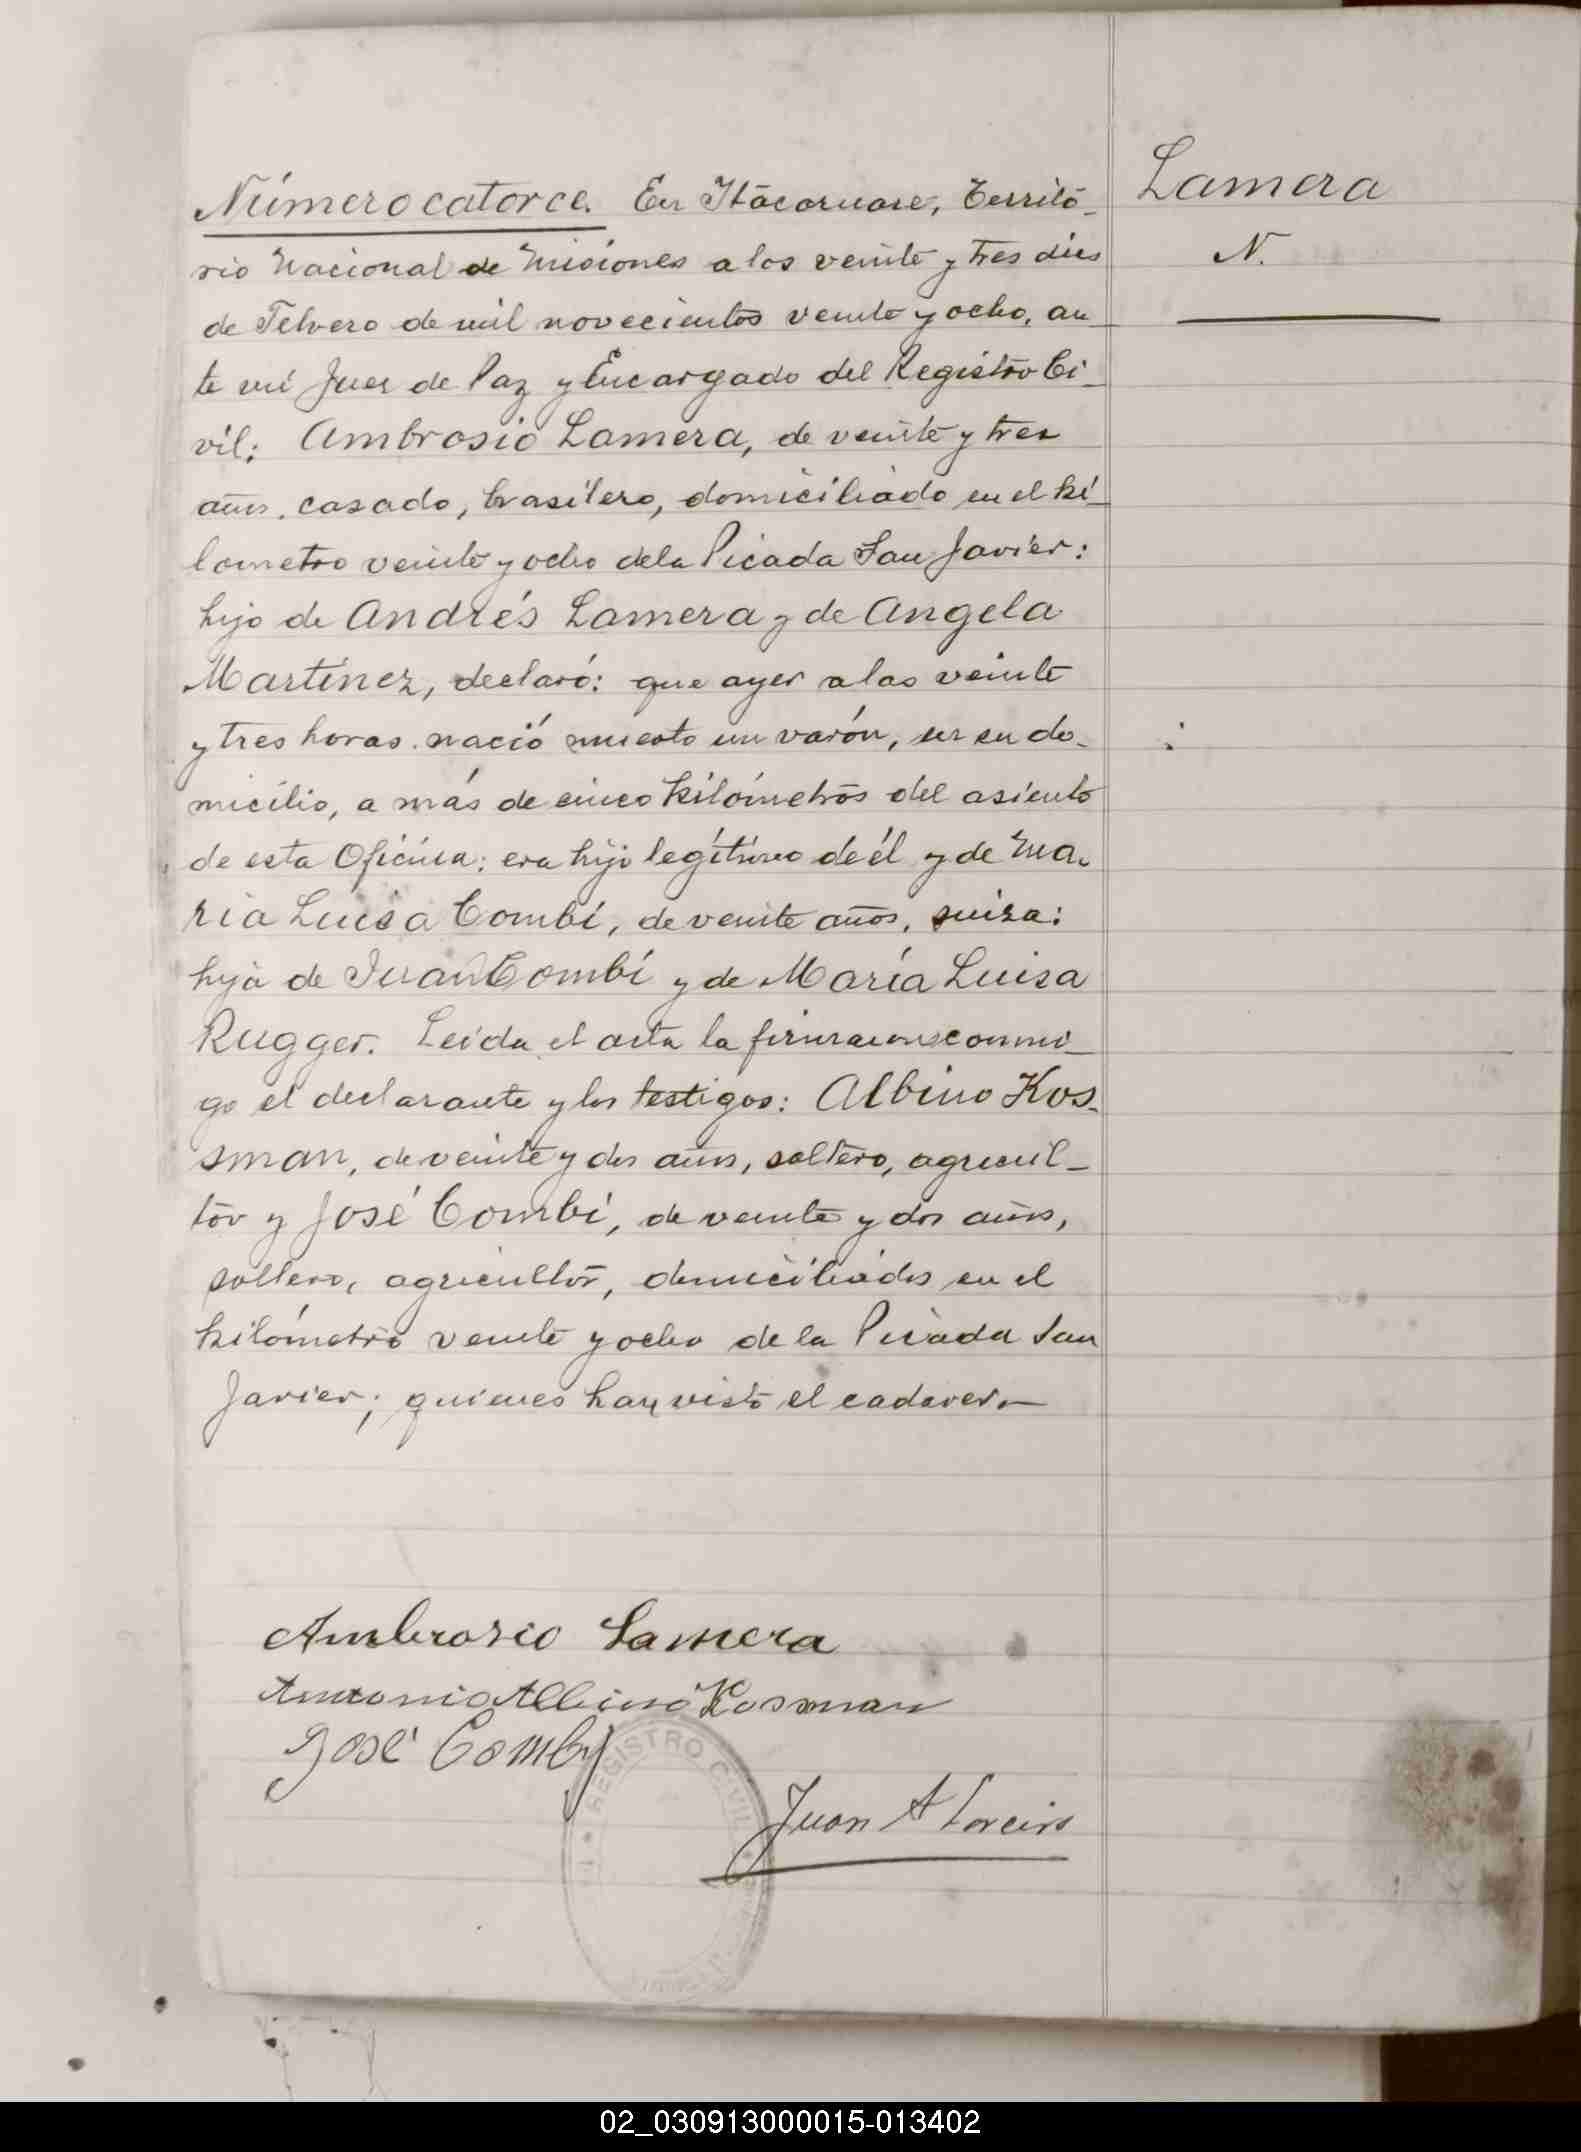 Número catorce. En Itacaruare, Territo-
rio Nacional de Misiones a los veinte y tres dias
de Febrero de mil novecientos veinte y ocho, an-
te mi Juez de Paz y Encargado del Registro Ci-
vil: Ambrosio Lamera, de veinte y tres
años, casado, brasilero, domiciliado en el ki-
lometro veinte y ocho de la Picada San Javier:
hijo de Andrés Lamera y de Angela
Martínez, declaró: que ayer a las veinte
y tres horas nació muerto un varón, en su do-
micilio, a más de cinco kilómetros del asiento
de esta Oficina: era hijo legítimo de él y de Ma-
ria Luisa Combi, de veinte años, suiza:
hija de Juan Combi y de María Luisa
Rugger. Leida el acta la firmaron conmi-
go el declarante y los testigos: Albino Kos-
sman, de veinte y dos años, soltero, agricul-
tor y José Combi, de veinte y dos años,
soltero, agricultor, domiciliados en el
kilómetro veinte y ocho de la Picada San
Javier; quienes han visto el cadaver.-
Lamera
N.
Ambrosio Lamera
Antonio Albino Kosman
José Comby
REGISTRO CIVIL
Juan A
02_030913000015-013402